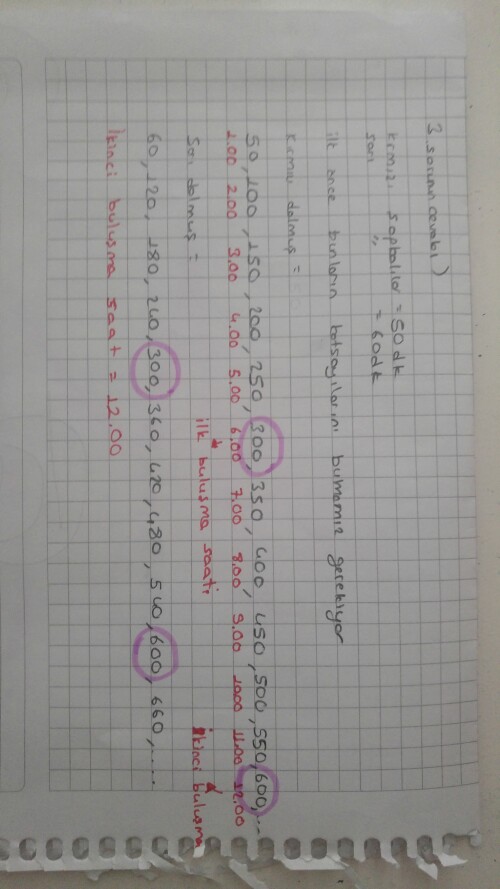 3. sorunun cevabı)
kırmızı şapkalılar = 50 dk
sarı " = 60 dk
ilk önce bunların katsayılarını bulmamız gerekiyor
kırmızı dolmuş =
50, 100, 150, 200, 250, 300, 350, 400, 450, 500, 550, 600, ...
1.00 2.00 3.00 4.00 5.00 6.00 7.00 8.00 9.00 10.00 11.00 12.00
ilk buluşma saati ikinci buluşma
Sarı dolmuş =
60, 120, 180, 240, 300, 360, 420, 480, 540, 600, 660, .....
İkinci buluşma saat = 12.00